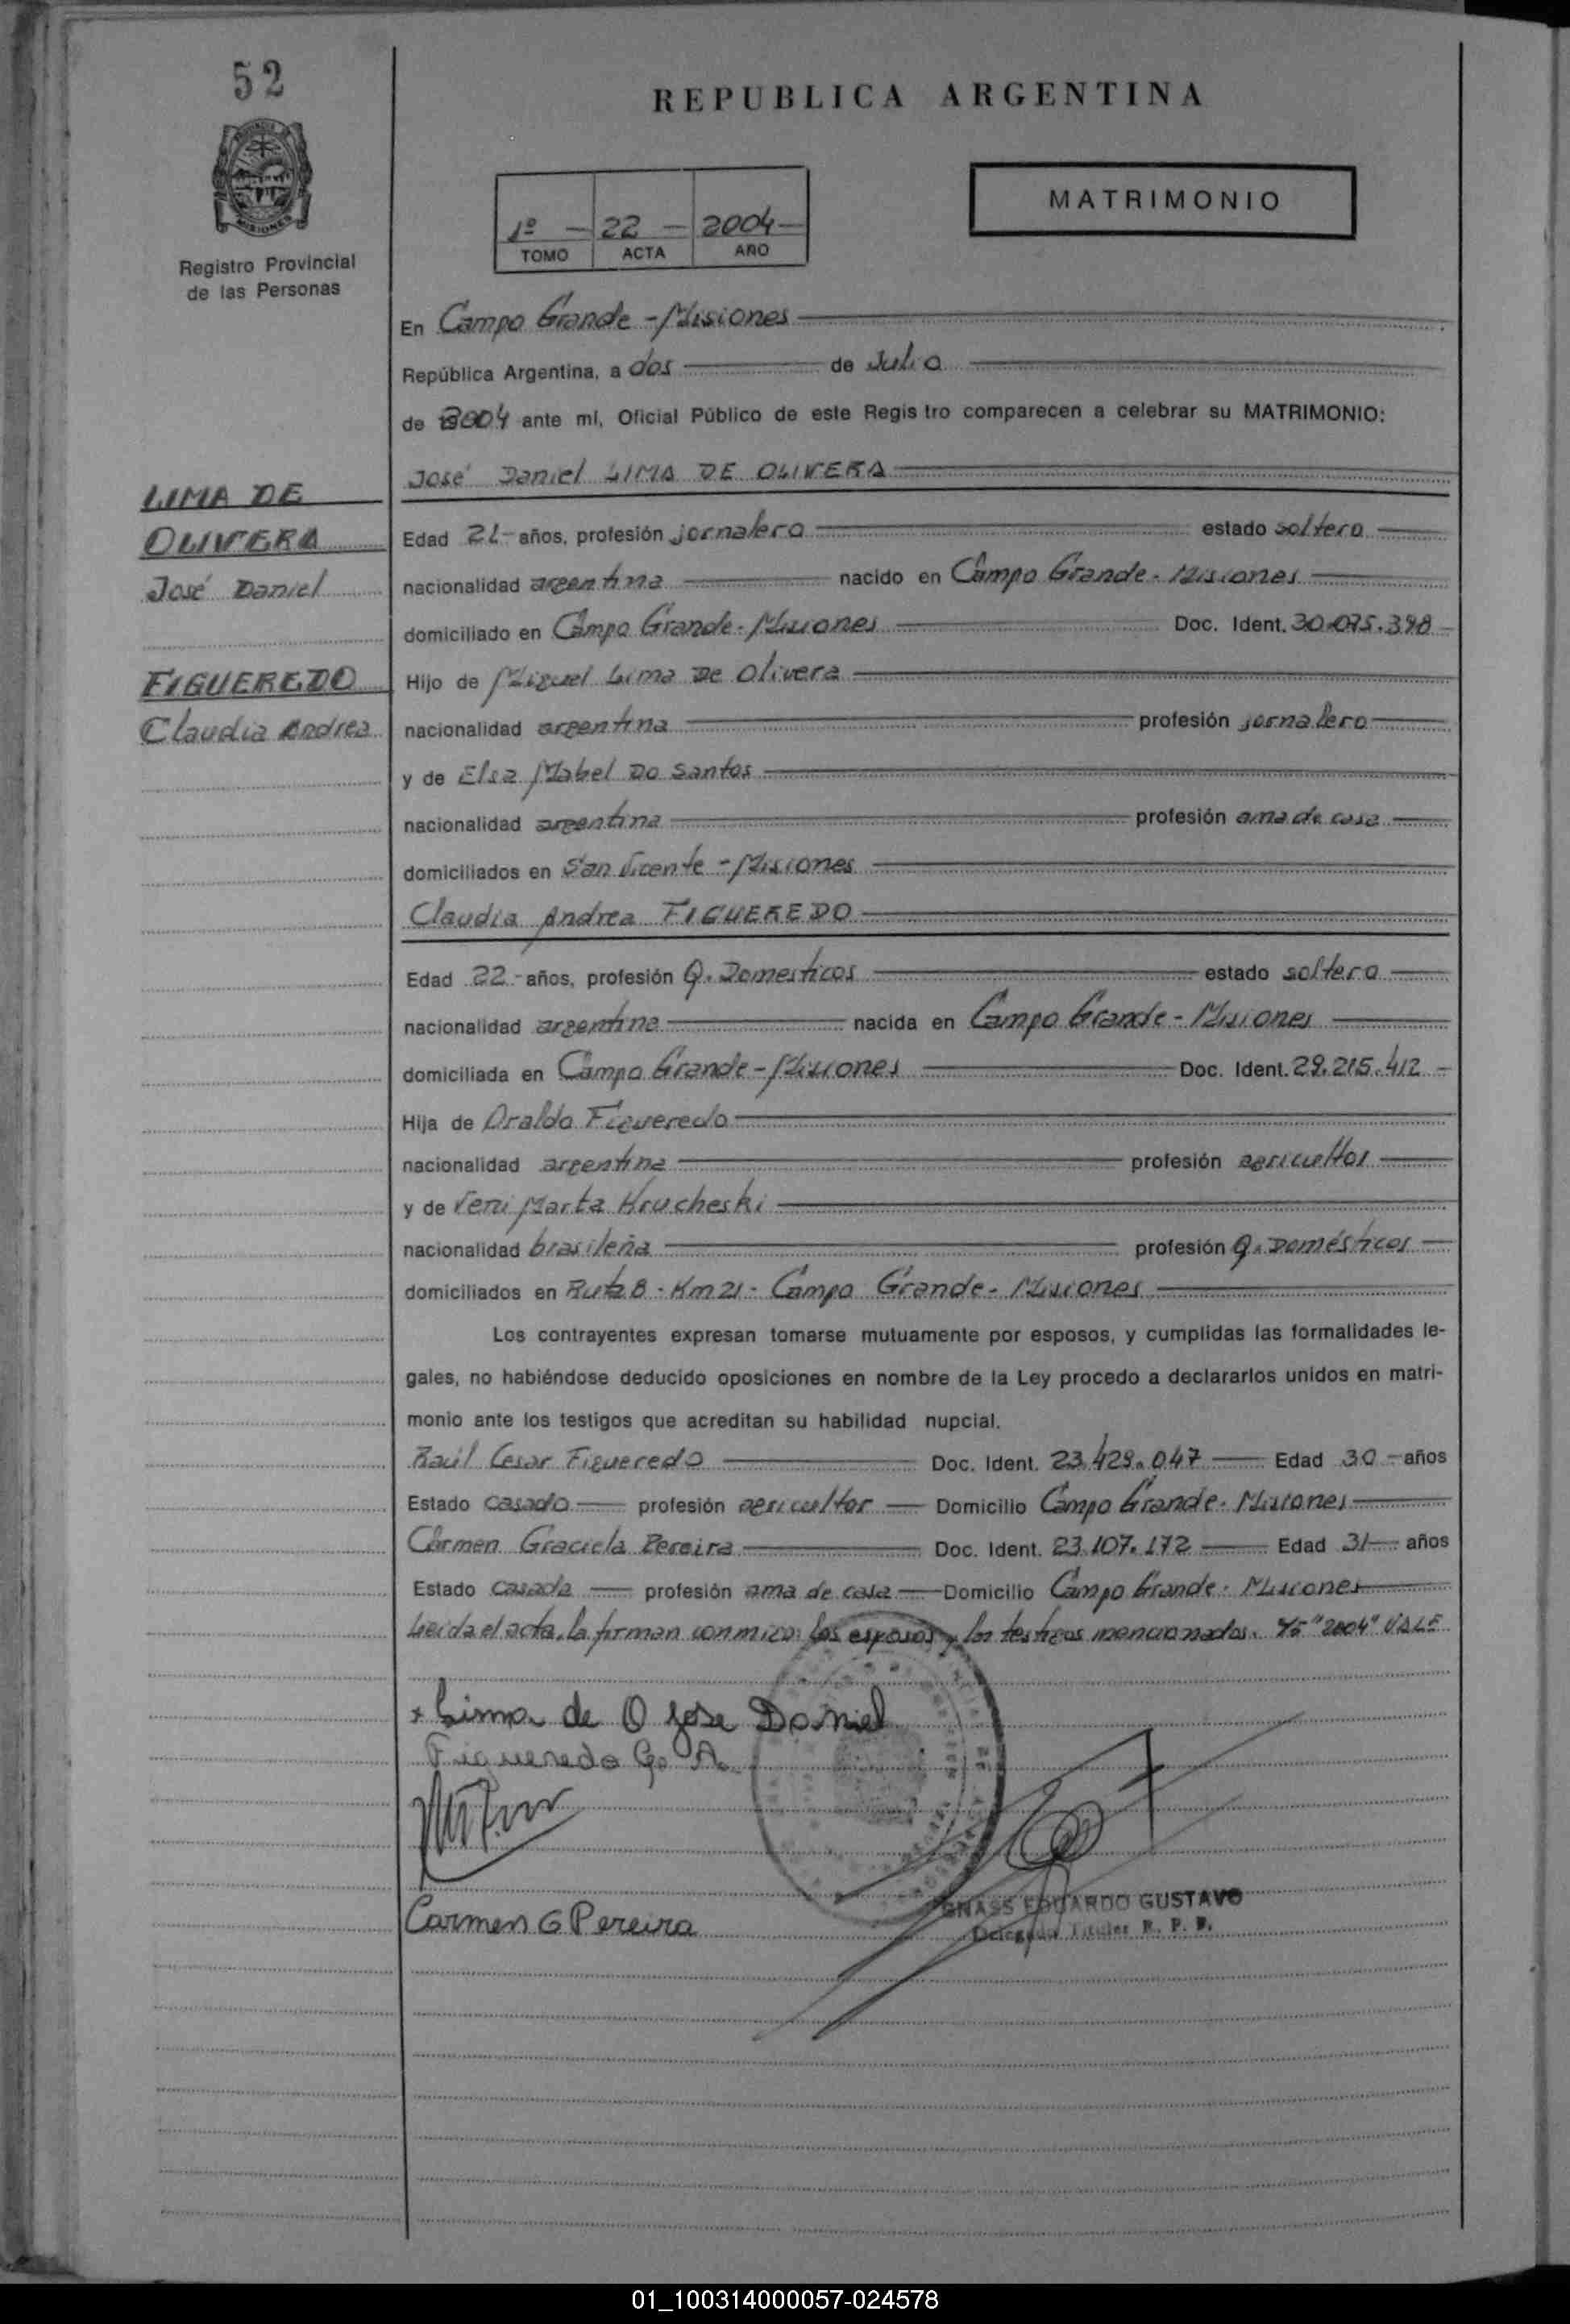 52
REPUBLICA ARGENTINA
MISIONES
Registro Provincial
de las Personas
1º - 22 - 2004 -
TOMO ACTA AÑO
MATRIMONIO
En Campo Grande - Misiones
República Argentina, a dos de Julio
de 2004 ante mí, Oficial Público de este Regis tro comparecen a celebrar su MATRIMONIO:
José Daniel LIMA DE OLIVERA
LIMA DE
OLIVERA
José Daniel
FIGUEREDO
Claudia Andrea
Edad 21- años, profesión jornalero estado soltero
nacionalidad argentina nacido en Campo Grande - Misiones
domiciliado en Campo Grande - Misiones Doc. Ident. 30.075.398
Hijo de Miguel Lima De Olivera
nacionalidad argentina profesión jornalero
y de Elsa Mabel Do Santos
nacionalidad argentina profesión ama de casa
domiciliados en San Vicente - Misiones
Claudia Andrea FIGUEREDO
Edad 22- años, profesión Q. Domesticos estado soltera
nacionalidad argentina nacida en Campo Grande - Misiones
domiciliada en Campo Grande - Misiones Doc. Ident. 29.215.412
Hija de Oraldo Figueredo
nacionalidad argentina profesión agricultor
y de Marta Krucheski
nacionalidad brasileña profesión Q. Domésticos
domiciliados en Ruta 8 - Km 21 - Campo Grande - Misiones
Los contrayentes expresan tomarse mutuamente por esposos, y cumplidas las formalidades le-
gales, no habiéndose deducido oposiciones en nombre de la Ley procedo a declararlos unidos en matri-
monio ante los testigos que acreditan su habilidad nupcial.
Raúl Cesar Figueredo Doc. Ident. 23.429.047 Edad 30 - años
Estado casado profesión agricultor Domicilio Campo Grande - Misiones
Carmen Graciela Pereira Doc. Ident. 23.107.172 Edad 31 años
Estado casada profesión ama de casa Domicilio Campo Grande - Misiones
Leida el acta, la firman conmigo: los esposos y los testigos mencionados. "2004" VALE
+ Lima de O Jose Daniel
Figueredo C. A.
Carmen G Pereira
GNASS EDUARDO GUSTAVO
Delegado Titular R. P. P.
01_100314000057-024578